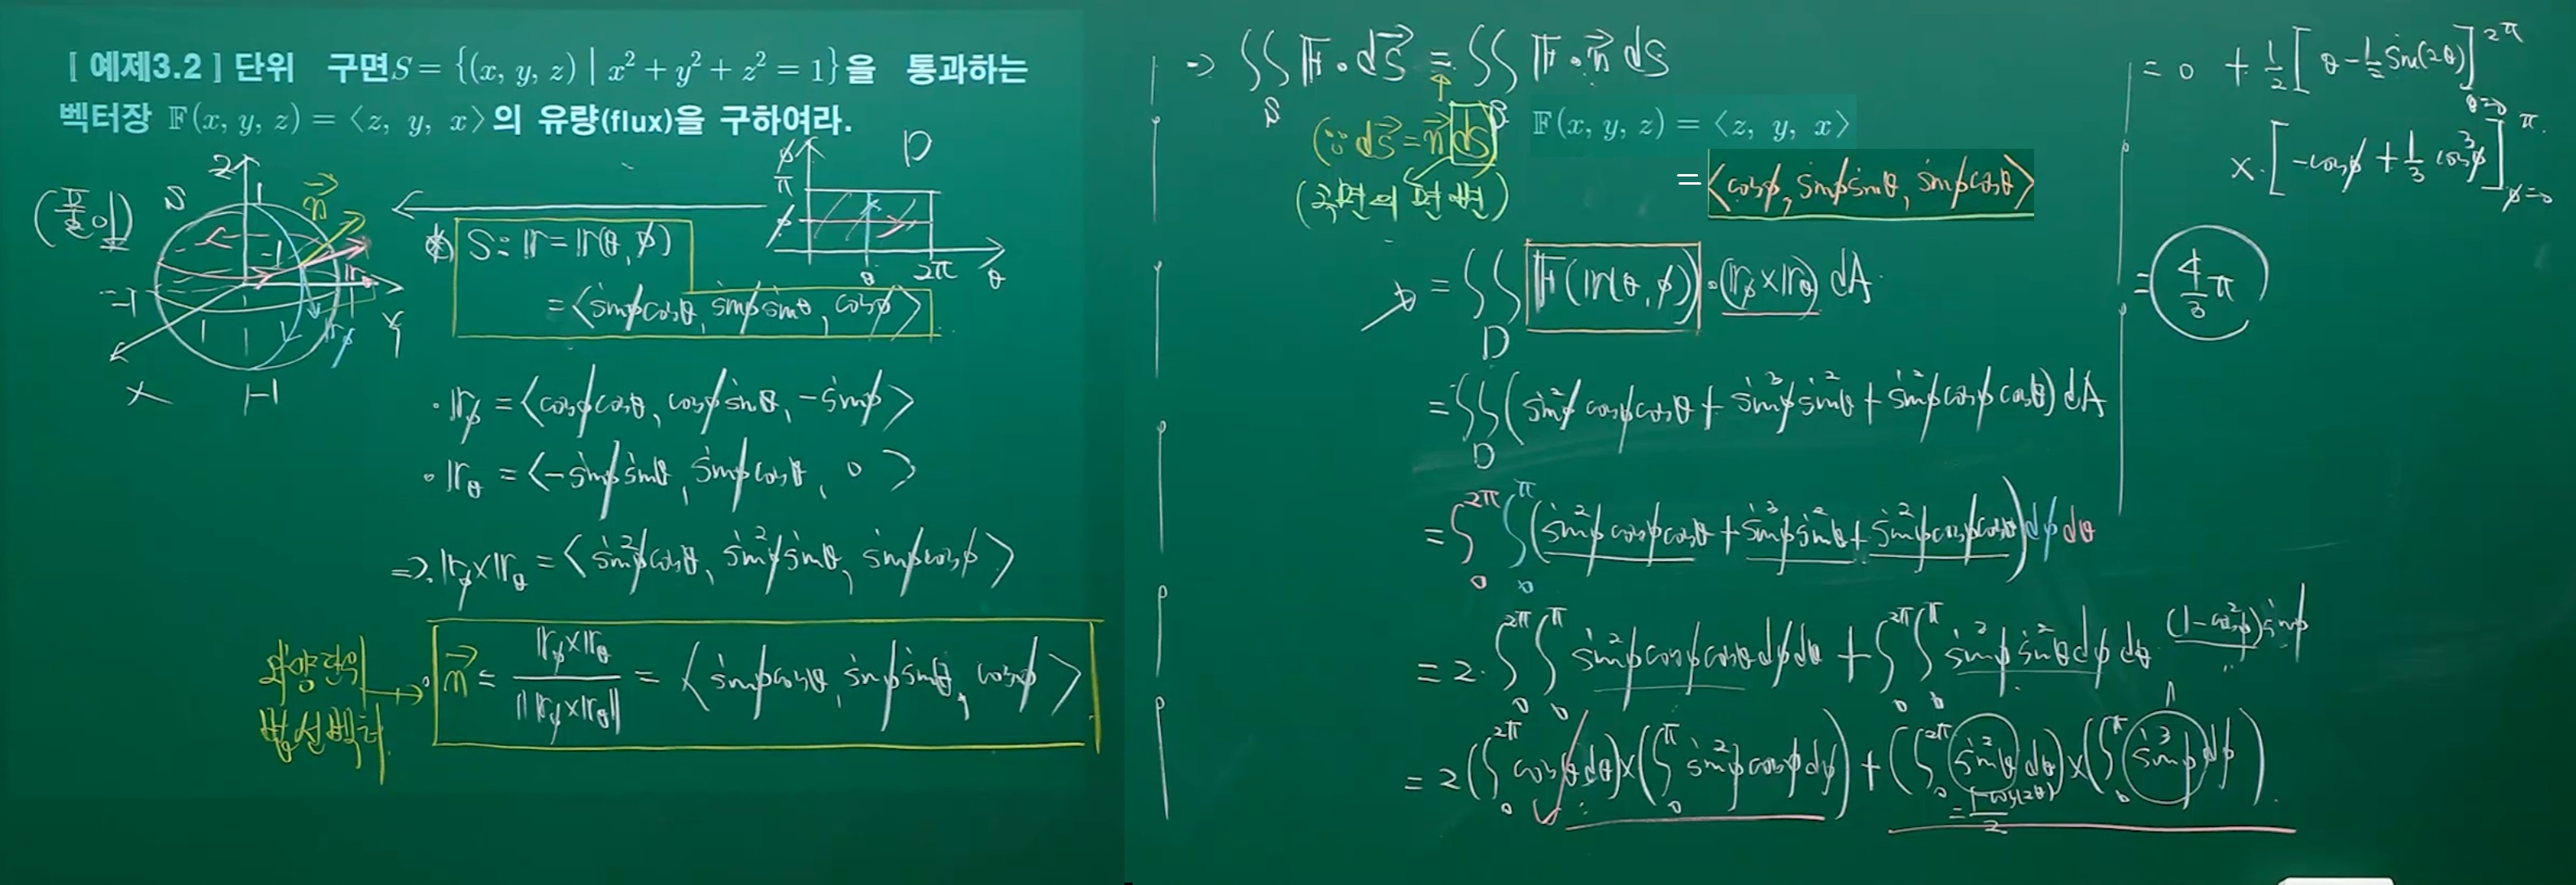 [ 예제3.2 ] 단위 구면S = {(x, y, z) | x² + y² + z² = 1}을 통과하는
벡터장 𝔽(x, y, z) = ⟨z, y, x⟩의 유량(flux)을 구하여라.
(풀이)
S
z
1
n⃗
-1
-1
1
y
x
-1
r_θ
r_φ
φ
π
φ
D
θ
2π
θ
(*) S : 𝕣 = 𝕣(θ, φ)
= ⟨sinφcosθ, sinφsinθ, cosφ⟩
· 𝕣_φ = ⟨cosφcosθ, cosφsinθ, -sinφ⟩
· 𝕣_θ = ⟨-sinφsinθ, sinφcosθ, 0⟩
⇒ 𝕣_φ×𝕣_θ = ⟨sin²φcosθ, sin²φsinθ, sinφcosφ⟩
외향단위
법선벡터
→ n⃗ = (𝕣_φ×𝕣_θ)/‖𝕣_φ×𝕣_θ‖ = ⟨sinφcosθ, sinφsinθ, cosφ⟩
→ ∬_S 𝔽·dS⃗ = ∬_S 𝔽·n⃗ dS
(∵ dS⃗ = n⃗ dS)
𝔽(x, y, z) = ⟨z, y, x⟩
= ⟨cosφ, sinφsinθ, sinφcosθ⟩
= ∬_D 𝔽(𝕣(θ, φ))·(𝕣_φ×𝕣_θ) dA
= ∬_D (sin²φcosφcosθ + sin³φsin²θ + sin²φcosφcosθ) dA
= ∫₀^2π ∫₀^π (sin²φcosφcosθ + sin³φsin²θ + sin²φcosφcosθ) dφdθ
= 2·∫₀^2π ∫₀^π sin²φcosφcosθdφdθ + ∫₀^2π ∫₀^π sin²φsin²θdφdθ
(1-cos²φ)sinφ
= 2(∫₀^2π cosθdθ)×(∫₀^π sin²φcosφdφ) + (∫₀^2π sin²θdθ)×(∫₀^π sin³φdφ)
0
= (1-cos(2θ))/2
= 0 + 1/2 [θ - 1/2 sin(2θ)]_θ=0^2π
×·[-cosφ + 1/3 cos³φ]_φ=0^π
= 4/3 π